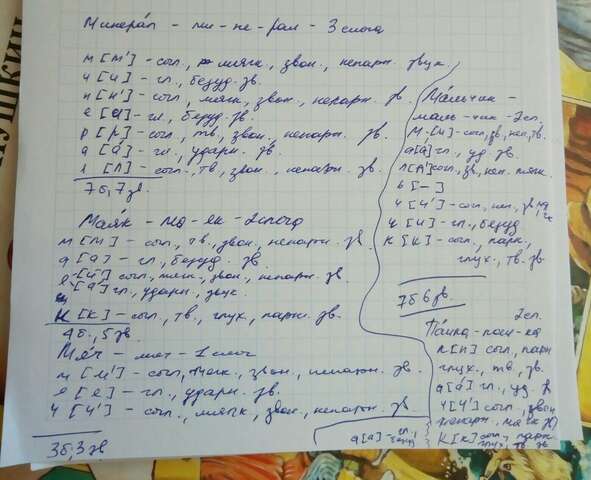 Минера́л - ми-не-рал - 3 слога
м [м'] - согл., мягк., звон., непарн. звук
и [и] - гл., безуд. зв.
н [н'] - согл., мягк., звон., непарн. зв.
е [и] - гл., безуд. зв.
р [р] - согл., тв., звон., непарн. зв.
а [а́] - гл., ударн. зв.
л [л] - согл., тв., звон., непарн. зв.
7б, 7зв.
Мая́к - ма-як - 2 слога
м [м] - согл., тв., звон., непарн. зв.
а [а] - гл., безуд. зв.
й' согл., мягк., звон., непарн. зв.
а́ гл., ударн. звук.
к [к] - согл., тв., глух., парн. зв.
4б., 5зв.
Мяч - мяч - 1 слог
м [м'] - согл., мягк., звон., непарн. зв.
гл., ударн. зв.
ч [ч'] - согл., мягк., непарн. зв.
3б, 3зв
Ма́льчик -
маль-чик - 2сл.
м [м] - согл, зв, неп, тв.
а [а́] гл., уд. зв.
л [л'] согл, зв, неп. мягк.
ь [-]
ч [ч'] - согл, неп,
и [и] - гл., безуд
к [к] - согл., парн.,
глух., тв. зв
7б 6зв.
2сл.
п [п] согл, парн
глух., тв., зв.
а [а́] гл., уд. з
ч [ч'] согл.,
непарн.,
к [к] согл., парн.,
глух., тв. зв
а [а] - гл.,